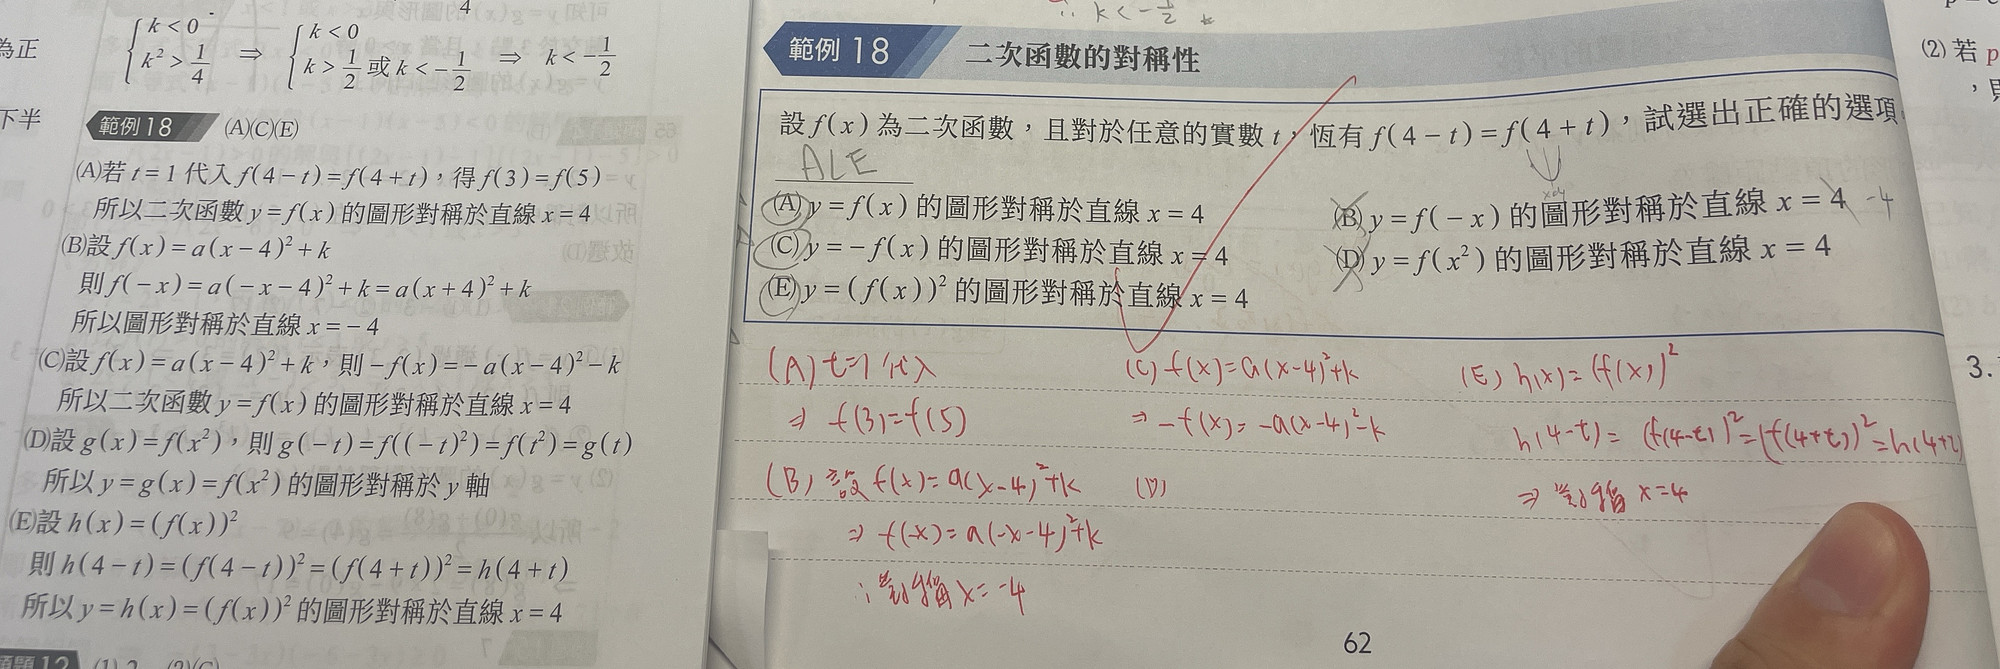 4
為正
下半
{ k < 0
k² > 1/4
⇒ { k < 0
k > 1/2 或 k < -1/2
⇒ k < -1/2
範例 18 (A)(C)(E)
(A)若 t = 1 代入 f(4 - t) = f(4 + t),得 f(3) = f(5)
所以二次函數 y = f(x) 的圖形對稱於直線 x = 4
(B)設 f(x) = a(x - 4)² + k
則 f(-x) = a(-x - 4)² + k = a(x + 4)² + k
所以圖形對稱於直線 x = -4
(C)設 f(x) = a(x - 4)² + k,則 -f(x) = -a(x - 4)² - k
所以二次函數 y = f(x) 的圖形對稱於直線 x = 4
(D)設 g(x) = f(x²),則 g(-t) = f((-t)²) = f(t²) = g(t)
所以 y = g(x) = f(x²) 的圖形對稱於 y 軸
(E)設 h(x) = (f(x))²
則 h(4 - t) = (f(4 - t))² = (f(4 + t))² = h(4 + t)
所以 y = h(x) = (f(x))² 的圖形對稱於直線 x = 4
12
∴ k < -1/2
範例 18 二次函數的對稱性
設 f(x) 為二次函數,且對於任意的實數 t,恆有 f(4 - t) = f(4 + t),試選出正確的選項
(A) y = f(x) 的圖形對稱於直線 x = 4
(B) y = f(-x) 的圖形對稱於直線 x = 4 -4
(C) y = -f(x) 的圖形對稱於直線 x = 4
(D) y = f(x²) 的圖形對稱於直線 x = 4
(E) y = (f(x))² 的圖形對稱於直線 x = 4
(A) t=1 代入
⇒ f(3)=f(5)
(B) 設 f(x)=a(x-4)²+k
⇒ f(-x)=a(-x-4)²+k
∴ 對稱 x=-4
(C) f(x)=a(x-4)²+k
⇒ -f(x)=-a(x-4)²-k
(D)
(E) h(x)=(f(x))²
h(4-t)=(f(4-t))²=(f(4+t))²=h(4+t)
⇒ 對稱 x=4
62
(2) 若 p
3.